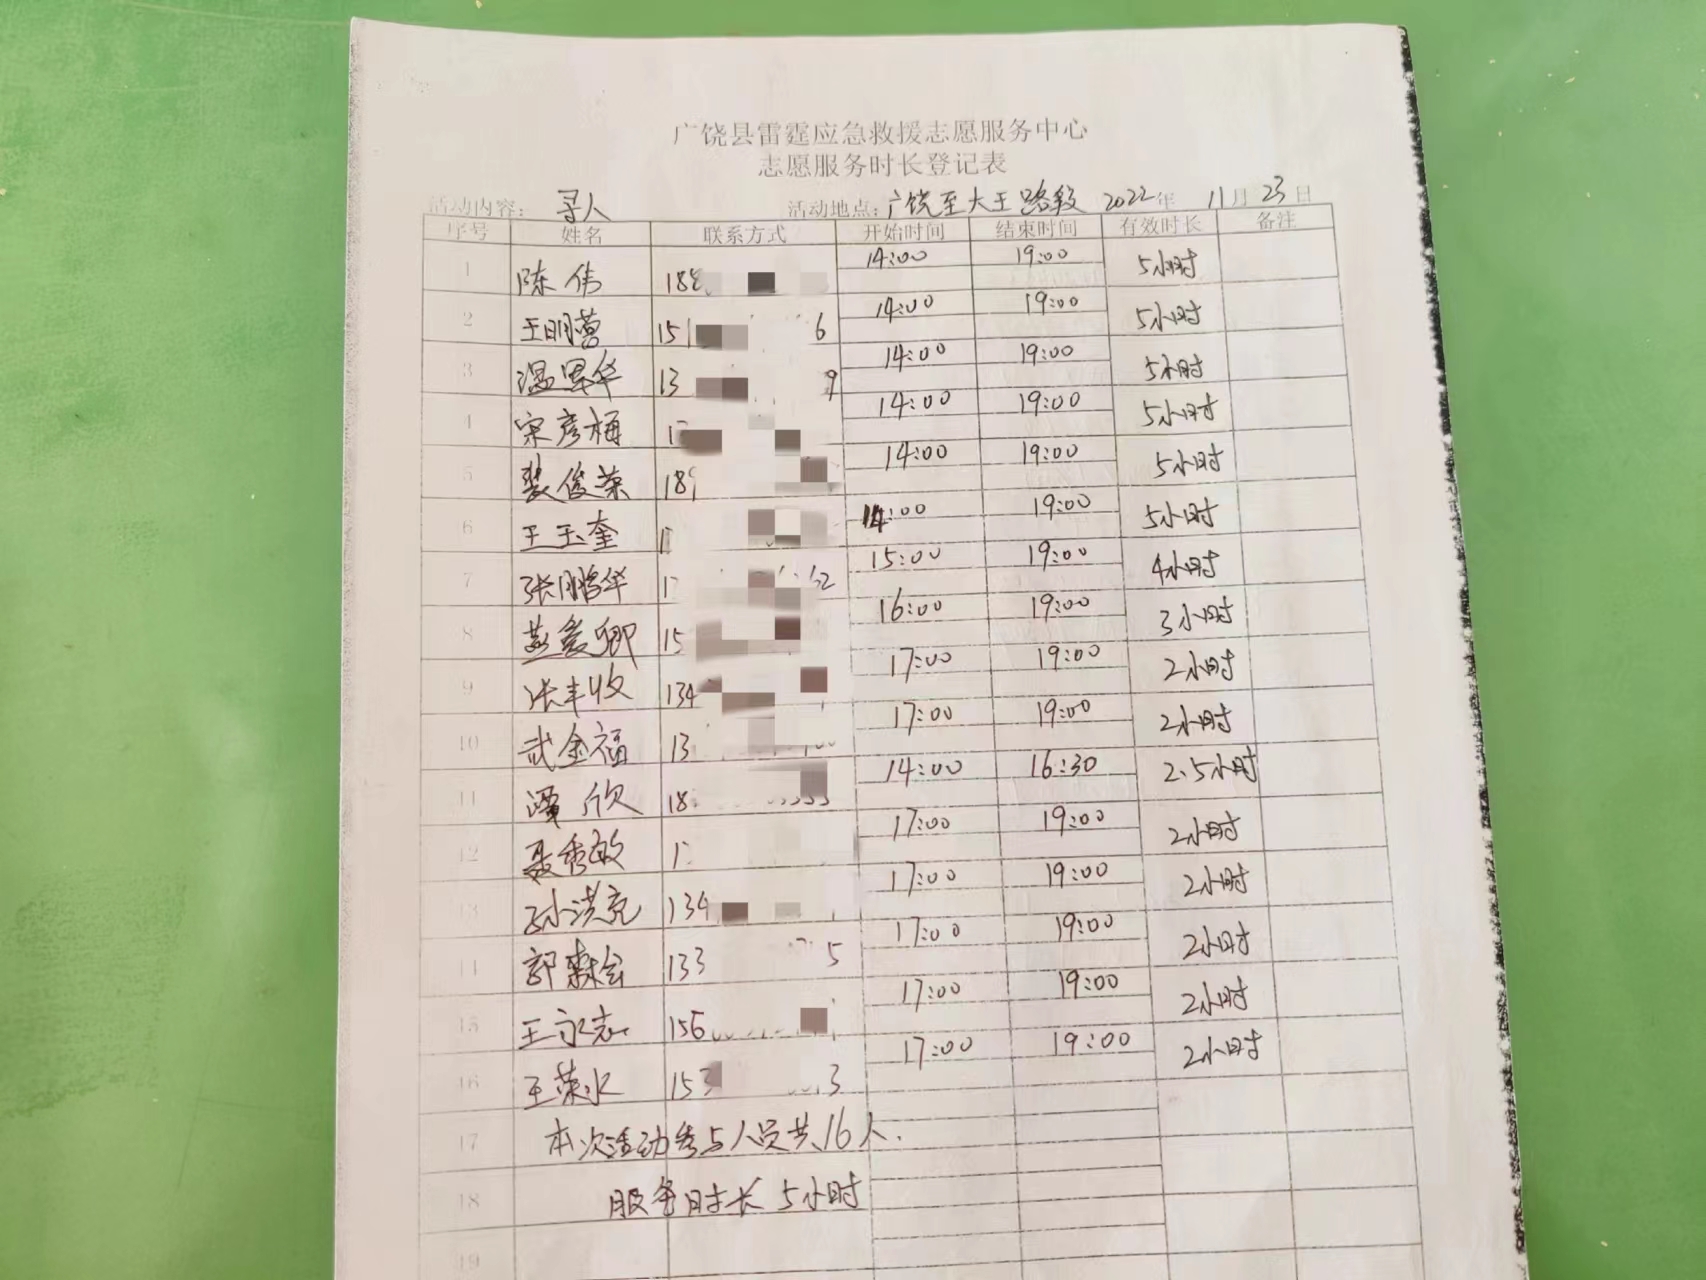 广饶县雷霆应急救援志愿服务中心
志愿服务时长登记表
活动内容: 寻人 活动地点: 广饶至大王路段 2022年 11月 23日
序号 姓名 联系方式 开始时间 结束时间 有效时长 备注
1 陈伟 188 14:00 19:00 5小时
2 王明营 15 6 14:00 19:00 5小时
3 温翠华 13 9 14:00 19:00 5小时
4 宋彦梅 1 14:00 19:00 5小时
5 裴俊荣 189 14:00 19:00 5小时
6 王玉奎 1 14:00 19:00 5小时
7 张鹏华 1 62 15:00 19:00 4小时
8 燕爱卿 15 16:00 19:00 3小时
9 张丰收 134 17:00 19:00 2小时
10 武金福 13 17:00 19:00 2小时
11 欣 18 14:00 16:30 2.5小时
12 聂秀敏 1 17:00 19:00 2小时
13 孙洪亮 134 17:00 19:00 2小时
14 郭森会 133 5 17:00 19:00 2小时
15 王永志 156 17:00 19:00 2小时
16 王荣水 153 3 17:00 19:00 2小时
17 本次活动参与人员共16人.
18 服务时长 5小时
19